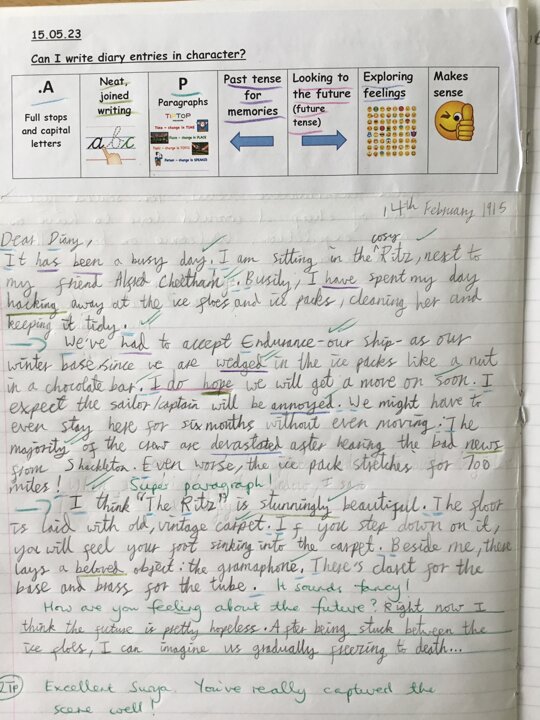 15.05.23
Can I write diary entries in character?
.A
Full stops
and capital
letters
Neat,
joined
writing
abc
P
Paragraphs
TiPToP
Time – change in TIME
Place – change in PLACE
Topic – change in TOPIC
Person – change in SPEAKER
Past tense
for
memories
Looking to
the future
(future
tense)
Exploring
feelings
Makes
sense
14th February 1915
Dear Diary,
It has been a busy day. I am sitting in the cosy Ritz, next to
my friend Alfred Cheetham. Busily, I have spent my day
hacking away at the ice floes and ice packs, cleaning her and
keeping it tidy.
We've had to accept Endurance - our ship - as our
winter base since we are wedged in the ice packs like a nut
in a chocolate bar. I do hope we will get a move on soon. I
expect the sailor/captain will be annoyed. We might have to
even stay here for six months without even moving. The
majority of the crew are devastated after hearing the bad news
from Shackleton. Even worse, the ice pack stretches for 700
miles! Super paragraph!
I think "The Ritz" is stunningly beautiful. The floor
is laid with old, vintage carpet. If you step down on it,
you will feel your foot sinking into the carpet. Beside me, there
lays a beloved object: the gramaphone. There's claret for the
base and brass for the tube. It sounds fancy!
How are you feeling about the future? Right now I
think the future is pretty hopeless. After being stuck between the
ice floes, I can imagine us gradually freezing to death...
Excellent Surya. You've really captured the
scene well!